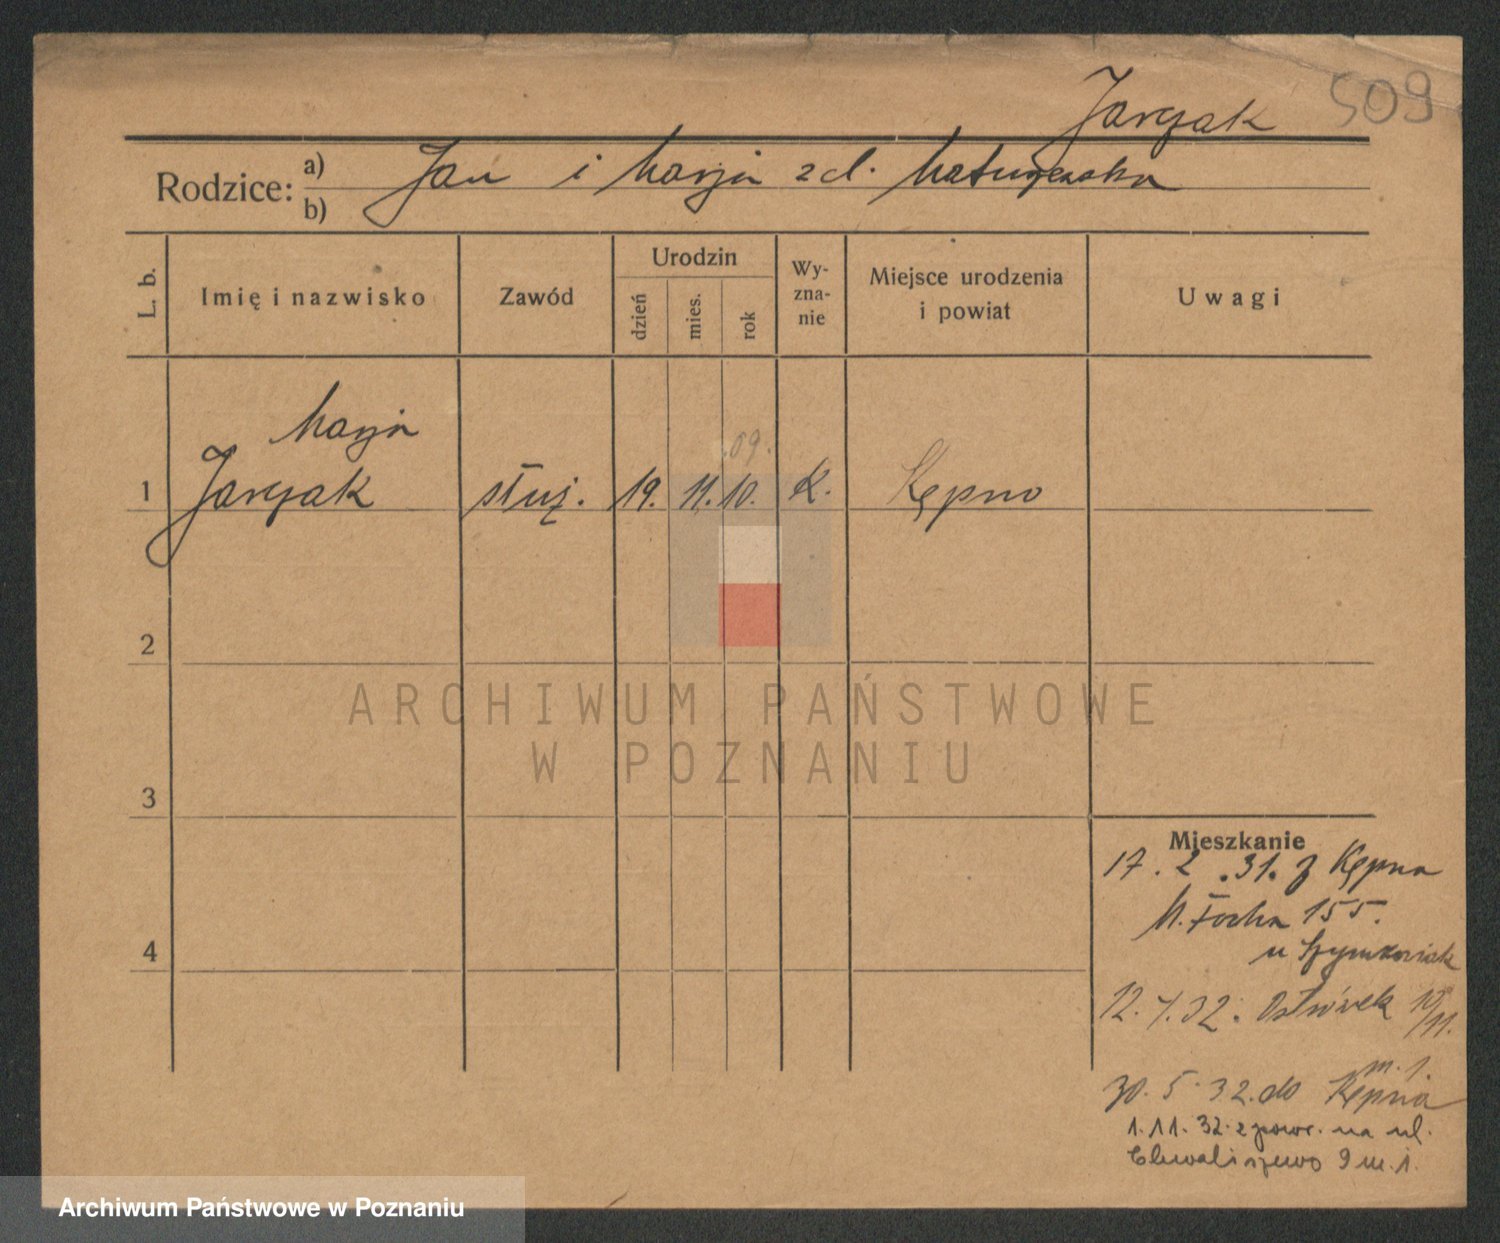 509
Jarczak
Rodzice: a) Jan i Marja z d.
b)
L. b.
Imię i nazwisko
Zawód
Urodzin
dzień
mies.
rok
Wy-
zna-
nie
Miejsce urodzenia
i powiat
Uwagi
Marja
09.
1 Jarczak służ. 19. 11. 10. K. Kępno
2
3
4
Mieszkanie
17. 2. 31. z Kępna
M. Focha 155.
u Szymkowiak
12. 32. Ostrówek 10/11.
m. 1.
30. 5. 32. do Kępna
1. 11. 32. z powr. na ul.
Chwaliszewo 9 m. 1.
ARCHIWUM PAŃSTWOWE
W POZNANIU
Archiwum Państwowe w Poznaniu